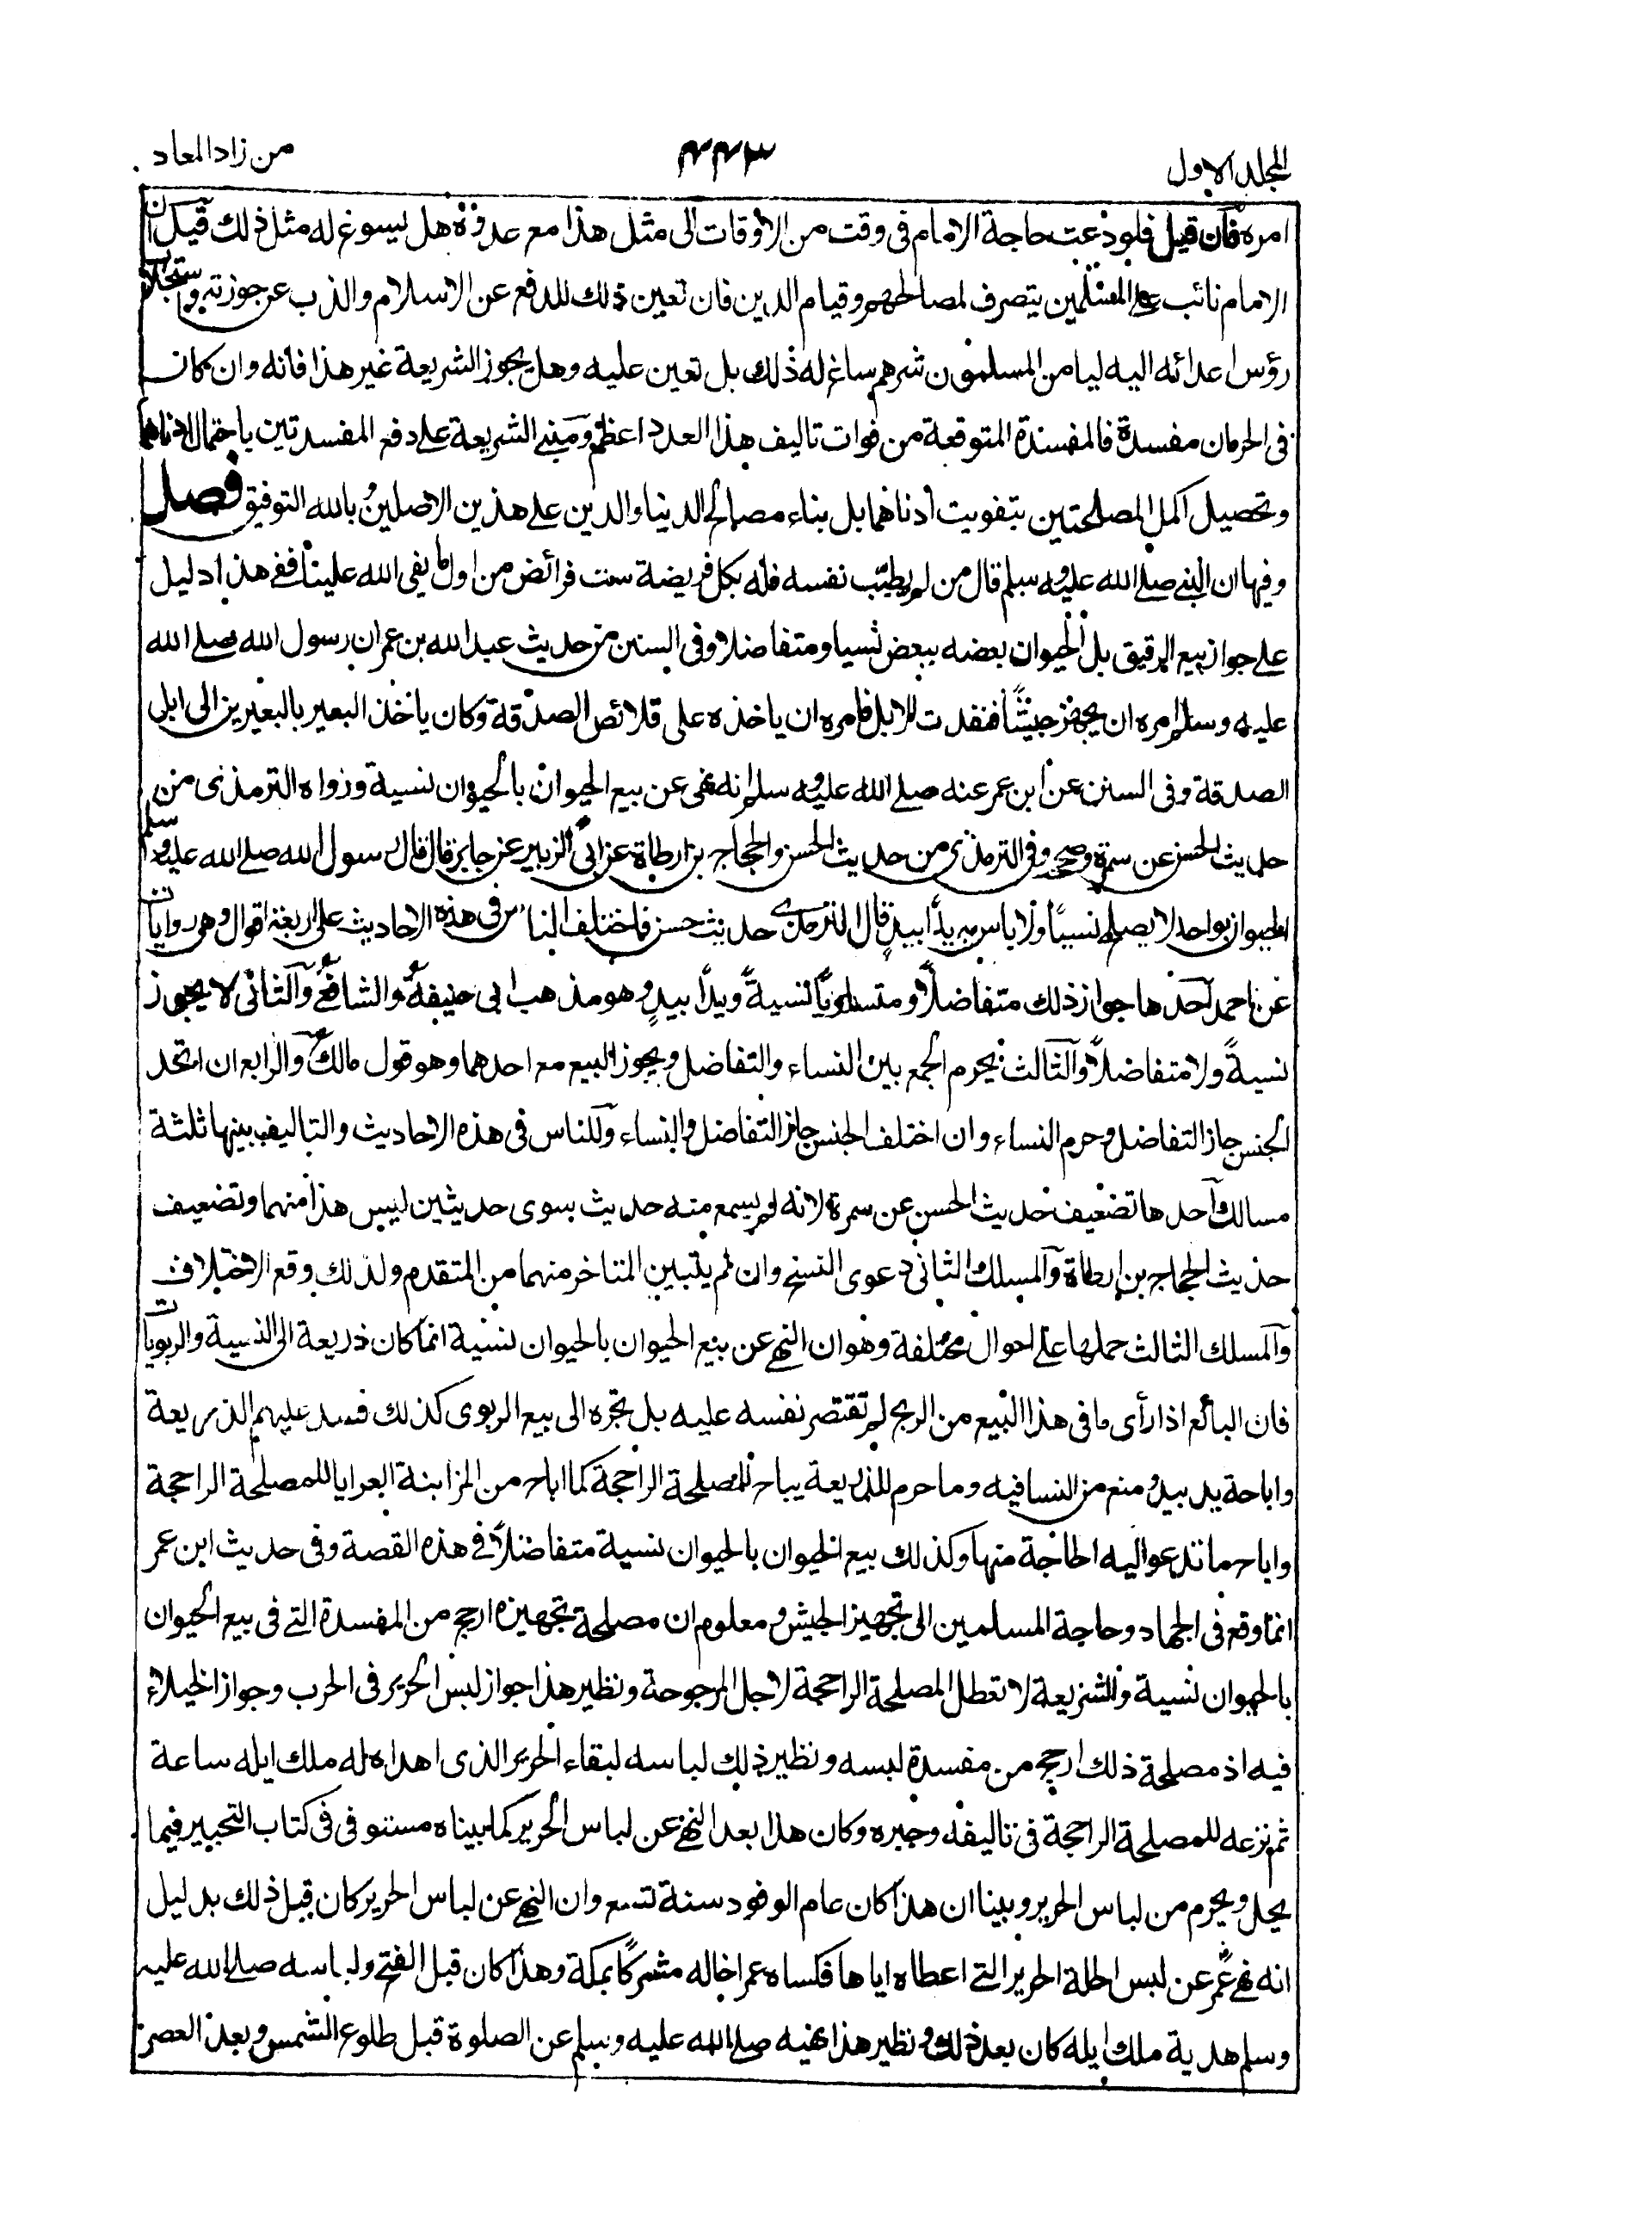 المجلد الاول
٤٤٣
من زاد المعاد
امره فان قيل فلو دعت حاجة الامام فى وقت من الاوقات الى مثل هذا مع عدوه هل يسوغ له مثل ذلك قيل ان
الامام نائب عن المسلمين يتصرف لمصالحهم وقيام الدين فان تعين ذلك للدفع عن الاسلام والذب عن حوزته واستجلاب
رؤس اعدائه اليه ليامن المسلمون شرهم ساغ له ذلك بل تعين عليه وهل يجوز الشريعة غير هذا فانه وان كان
فى الحرمان مفسدة فالمفسدة المتوقعة من فوات تاليف هذا العدد اعظم ومبنى الشريعة على دفع المفسدتين باحتمال ادناهما
وتحصيل اكمل المصلحتين بتفويت ادناهما بل بناء مصالح الدنيا والدين على هذين الاصلين وبالله التوفيق فصل
وفيها ان النبى صلى الله عليه وسلم قال من لم يطيب نفسه فله بكل فريضة ست فرائض من اول ما يفى الله علينا ففى هذا دليل
على جواز بيع الرقيق بل الحيوان بعضه ببعض نسيا ومتفاضلا وفى السنن من حديث عبد الله بن عمر ان رسول الله صلى الله
عليه وسلم امره ان يجهز جيشا فنفدت الابل فامره ان ياخذه على قلائص الصدقة وكان ياخذ البعير بالبعيرين الى ابل
الصدقة وفى السنن عن ابن عمر عنه صلى الله عليه وسلم انه نهى عن بيع الحيوان بالحيوان نسية ورواه الترمذى من
حديث الحسن عن سمرة وصححه وفى الترمذى من حديث الحسن والحجاج بن ارطاة عن ابى الزبير عن جابر قال قال رسول الله صلى الله عليه وسلم
الحيوان بواحد لا يصلح نسيا ولا باس به يدا بيد قال الترمذى حديث حسن فاختلف الناس فى هذه الاحاديث على اربعة اقوال وهى روايات
عن احمد احدها جواز ذلك متفاضلا ومتساويا نسية ويدا بيد وهو مذهب ابى حنيفة والشافعى والثانى لا يجوز
نسية ولا متفاضلا والثالث يحرم الجمع بين النساء والتفاضل ويجوز البيع مع احدهما وهو قول مالك والرابع ان اتحد
الجنس جاز التفاضل وحرم النساء وان اختلف الجنس جاز التفاضل والنساء وللناس فى هذه الاحاديث والتاليف بينها ثلثة
مسالك احدها تضعيف حديث الحسن عن سمرة لانه لم يسمع منه حديث سوى حديثين ليس هذا منهما وتضعيف
حديث الحجاج بن ارطاة والمسلك الثانى دعوى النسخ وان لم يتبين المتاخر منهما من المتقدم ولذلك وقع الاختلاف
والمسلك الثالث حملها على احوال مختلفة وهو ان النهى عن بيع الحيوان بالحيوان نسية انما كان ذريعة الى النسية والربويات
فان البائع اذا رأى ما فى هذا البيع من الربح لم تقتصر نفسه عليه بل تجره الى بيع الربوى كذلك فسد عليهم الذريعة
واباحة يد بيد ومنع من النسا فيه وما حرم للذريعة يباح للمصلحة الراجحة كما اباح من المزابنة العرايا للمصلحة الراجحة
واباح ما تدعو اليه الحاجة منها وكذلك بيع الحيوان بالحيوان نسية متفاضلا فى هذه القصة وفى حديث ابن عمر
انما وقع فى الجهاد وحاجة المسلمين الى تجهيز الجيش ومعلوم ان مصلحة تجهيزه ارجح من المفسدة التى فى بيع الحيوان
بالحيوان نسية والشريعة لا تعطل المصلحة الراجحة لاجل المرجوحة ونظير هذا جواز لبس الحرير فى الحرب وجواز الخيلاء
فيه اذ مصلحة ذلك ارجح من مفسدة لبسه ونظير ذلك لباسه لبقاء الحرير الذى اهداه له ملك ايله ساعة
ثم نزعه للمصلحة الراجحة فى تاليفه وجبره وكان هذا بعد النهى عن لباس الحرير كما بيناه مستوفى فى كتاب التحبير فيما
يحل ويحرم من لباس الحرير وبينا ان هذا كان عام الوفود سنة تسع وان النهى عن لباس الحرير كان قبل ذلك بدليل
انه نهى عمر عن لبس الحلة الحرير التى اعطاه اياها فكساه عمر اخاله مشركا بمكة وهذا كان قبل الفتح ولباسه صلى الله عليه
وسلم هدية ملك ايله كان بعد ذلك ونظير هذا نهيه صلى الله عليه وسلم عن الصلوة قبل طلوع الشمس وبعد العصر